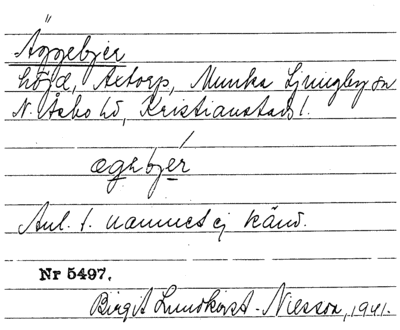 Äggebjer
höjd, Axtorp, Munka Ljungby sn
N. Åsbo hd, Kristianstads l.
ægəbjér
Anl. t. namnet ej känd.
Nr 5497.
Birgit Lundkvist-Nilsson, 1941.